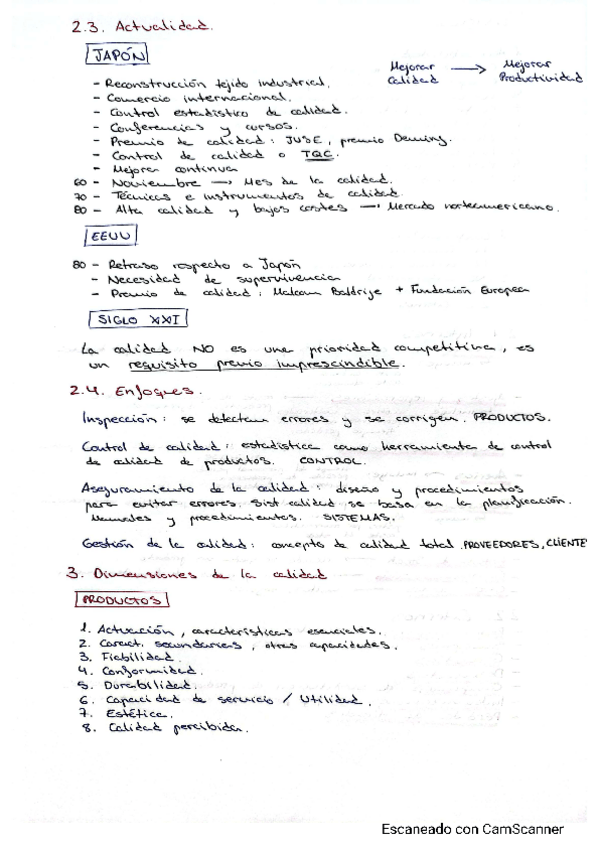 2.3. Actualidad.
JAPÓN
Mejorar Calidad → Mejorar Productividad
- Reconstrucción tejido industrial.
- Comercio internacional.
- Control estadístico de calidad.
- Conferencias y cursos.
- Premio de calidad: JUSE, premio Deming.
- Control de calidad o TQC.
- Mejora continua
60 - Noviembre → Mes de la calidad.
70 - Técnicas e instrumentos de calidad.
80 - Alta calidad y bajos costes → Mercado norteamericano.
EEUU
80 - Retraso respecto a Japón
- Necesidad de supervivencia
- Premio de calidad: Malcom Baldrige + Fundación Europea
SIGLO XXI
La calidad NO es una prioridad competitiva, es
un requisito previo imprescindible.
2.4. Enfoques.
Inspección: se detectan errores y se corrigen. PRODUCTOS.
Control de calidad: estadística como herramienta de control
de calidad de productos. CONTROL.
Aseguramiento de la calidad: diseño y procedimientos
para evitar errores. Sist calidad se basa en la planificación.
Manuales y procedimientos. SISTEMAS.
Gestión de la calidad: concepto de calidad total. PROVEEDORES, CLIENTE
3. Dimensiones de la calidad
PRODUCTOS
1. Actuación, características esenciales.
2. Caract. secundarias, otras capacidades.
3. Fiabilidad.
4. Conformidad.
5. Durabilidad.
6. Capacidad de servicio / Utilidad.
7. Estética.
8. Calidad percibida.
Escaneado con CamScanner